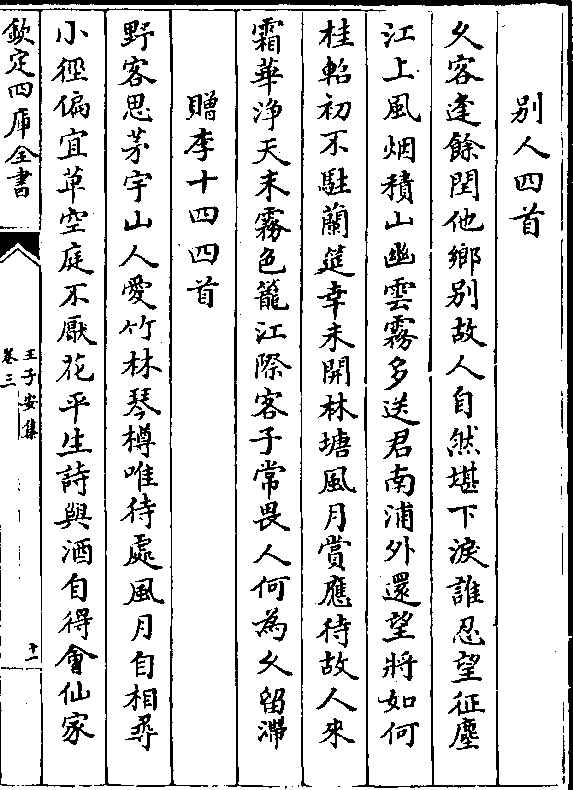 別人四首
久客逢餘閏他鄉别故人自然堪下淚誰忍望征塵
江上風烟積山幽雲霧多送君南浦外還望將如何
桂軺初不駐蘭筵幸未開林塘風月賞應待故人來
霜華浄天末霧色籠江際客子常畏人何為久留滯
贈李十四四首
野客思茅宇山人愛竹林琴樽唯待處風月自相尋
小徑偏宜草空庭不厭花平生詩與酒自得會仙家
欽定四庫全書
王子安集
卷三
十一